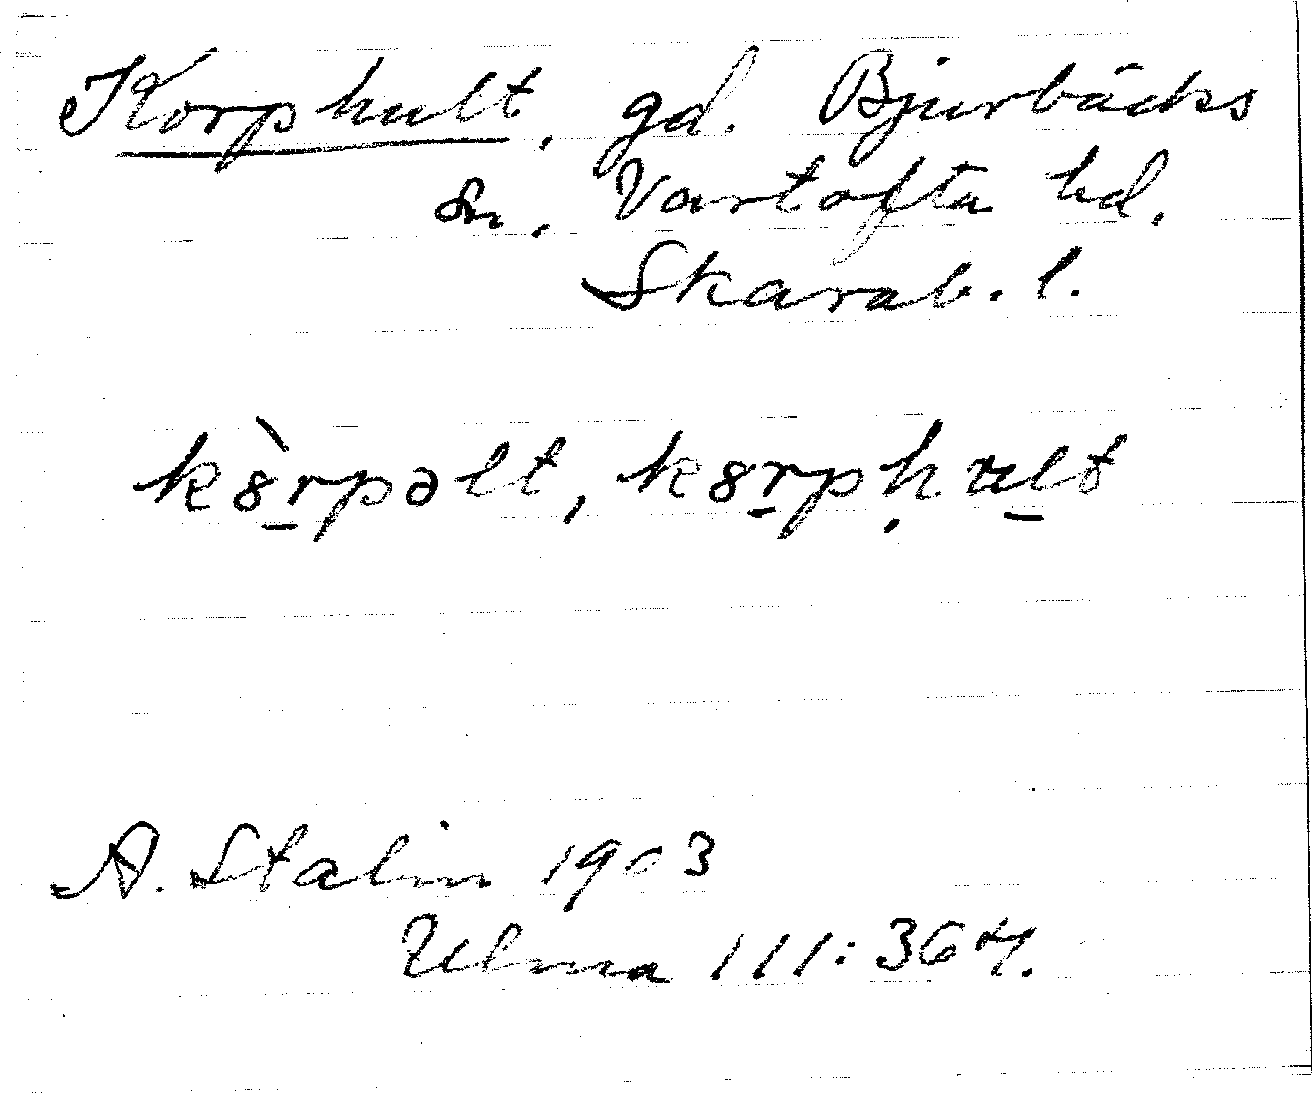 Korphult, gd. Bjurbäcks
sn. Vartofta hd.
Skarab. l.
k8̀r̲pəlt, k8r̲pḥu̲lt
A. Stalin 1903
Ulma 111:364.